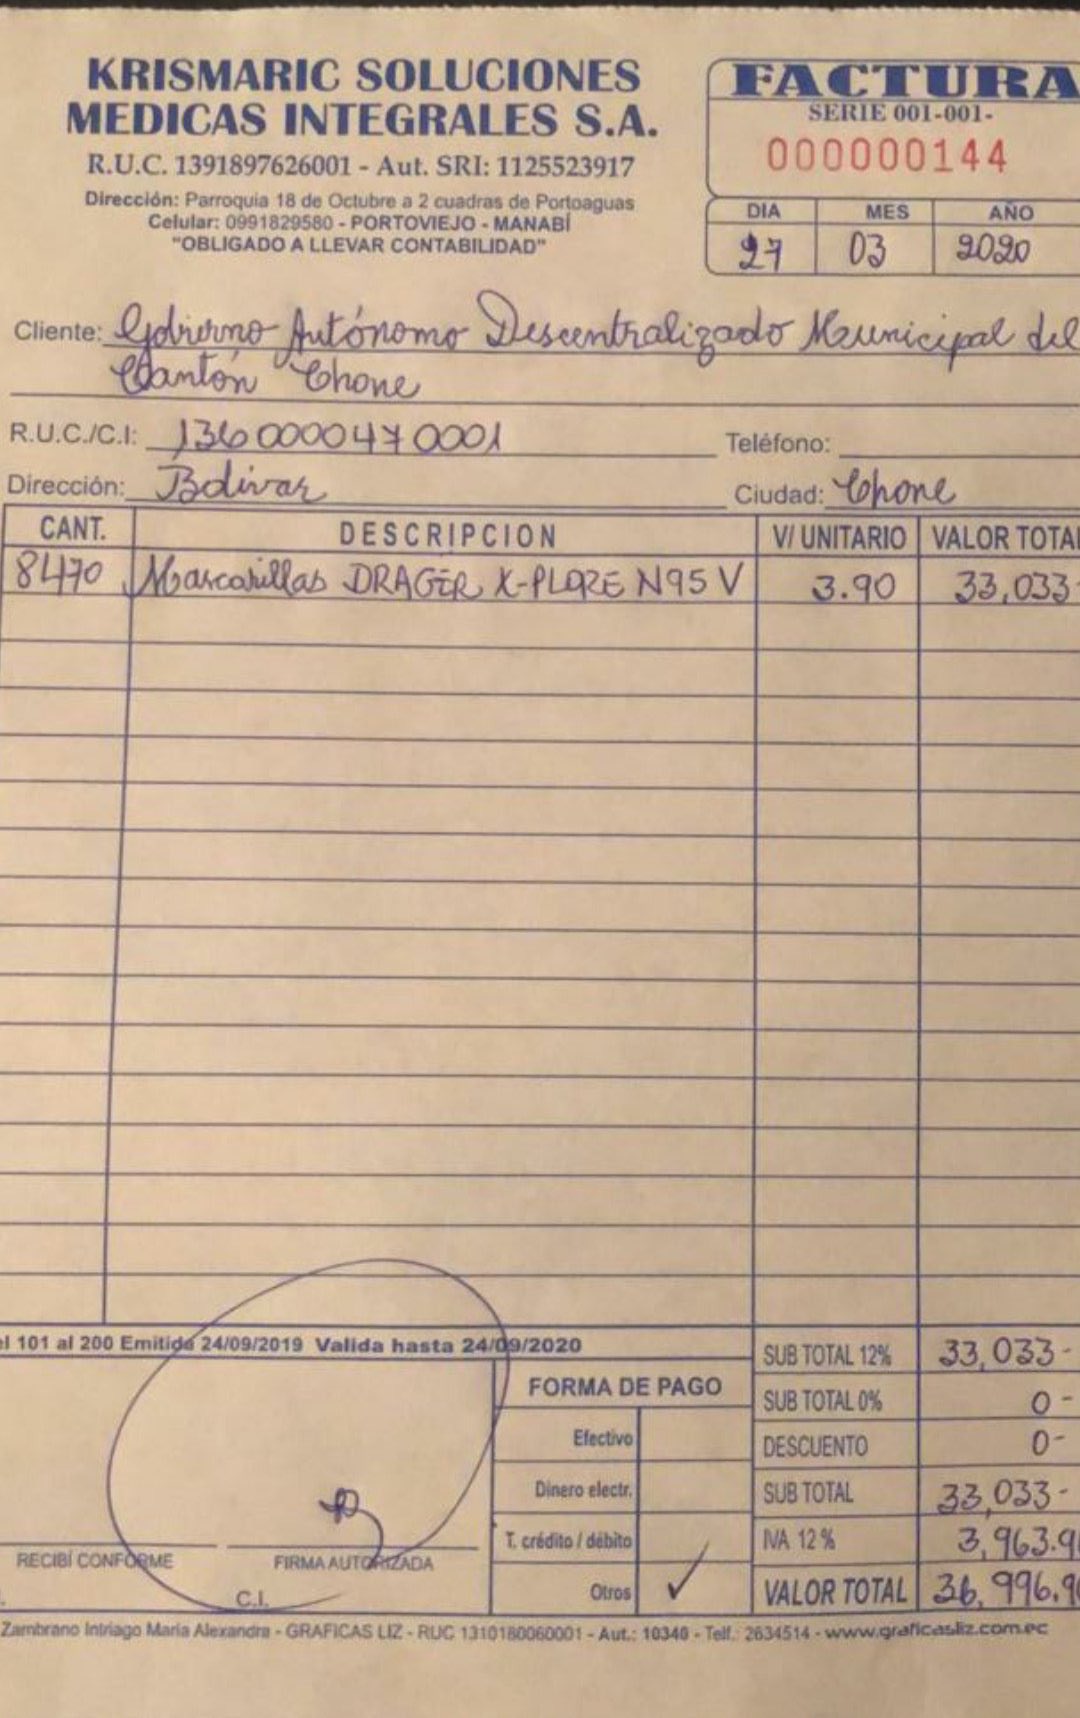 KRISMARIC SOLUCIONES
MEDICAS INTEGRALES S.A.
R.U.C. 1391897626001 - Aut. SRI: 1125523917
Dirección: Parroquia 18 de Octubre a 2 cuadras de Portoaguas
Celular: 0991829580 - PORTOVIEJO - MANABÍ
"OBLIGADO A LLEVAR CONTABILIDAD"
FACTURA
SERIE 001-001-
000000144
DIA MES AÑO
27 03 2020
Cliente: Gobierno Autónomo Descentralizado Municipal del
Cantón Chone
R.U.C./C.I: 1360000470001 Teléfono:
Dirección: Bolívar Ciudad: Chone
CANT. DESCRIPCION V/ UNITARIO VALOR TOTAL
8470 Mascarillas DRAGER X-PLORE N95 V 3.90 33,033-
el 101 al 200 Emitida 24/09/2019 Valida hasta 24/09/2020
SUB TOTAL 12% 33,033-
FORMA DE PAGO
SUB TOTAL 0% 0-
Efectivo
DESCUENTO 0-
Dinero electr.
SUB TOTAL 33,033-
T. crédito / débito
IVA 12% 3,963.96
RECIBÍ CONFORME FIRMA AUTORIZADA
Otros ✓
VALOR TOTAL 36,996.96
C.I.
Zambrano Intriago María Alexandra - GRAFICAS LIZ - RUC 1310180060001 - Aut.: 10340 - Telf.: 2634514 - www.graficasliz.com.ec